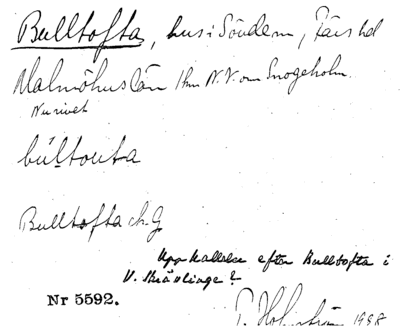 Bulltofta, hus i Sövdem, Färs hd
Malmöhus län 1 km N.V. om Snogeholm.
Nu rivet
bu̇ltouta
Bulltofta ch. G
Uppkallelse efter Bulltofta i
V. Skrävlinge?
Nr 5592.
1998